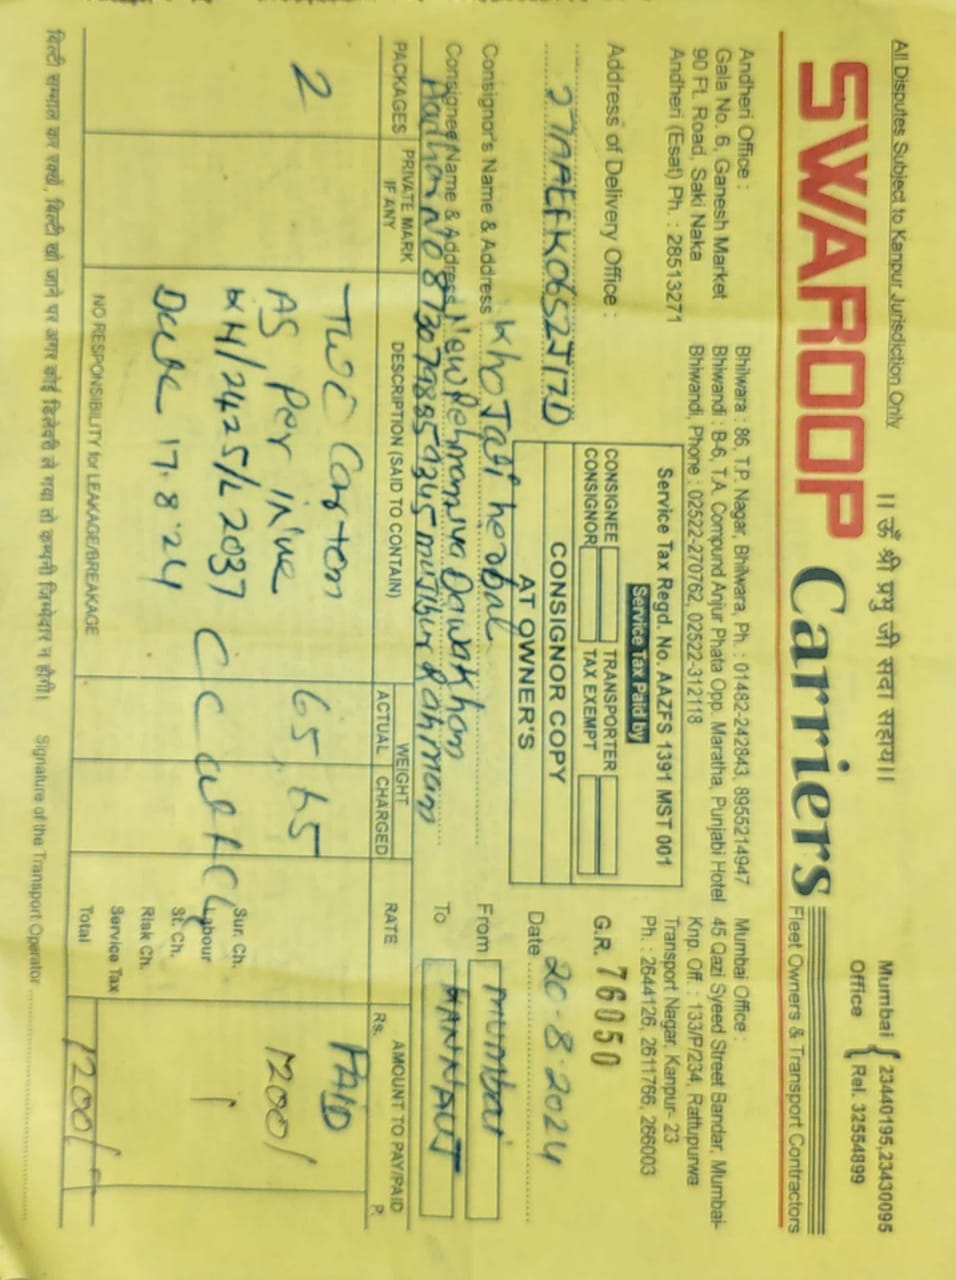 ।। ॐ श्री प्रभु जी सदा सहाय।।
All Disputes Subject to Kanpur Jurisdiction Only
Mumbai Office { 23440195,23430095
Rel. 32554899
SWAROOP Carriers
Fleet Owners & Transport Contractors
Andheri Office :
Gala No. 6, Ganesh Market
90 Ft. Road, Saki Naka
Andheri (Esat) Ph. : 28513271
Bhilwara : 86, T.P. Nagar, Bhilwara, Ph. : 01482-242843, 8955214947
Bhiwandi : B-6, T.A. Compound Anjur Phata Opp. Maratha, Punjabi Hotel
Bhiwandi, Phone : 02522-270762, 02522-312118
Mumbai Office :
45 Qazi Syeed Street Bandar, Mumbai-
Knp. Off. : 133/P/234, Rattupurwa
Transport Nagar, Kanpur- 23
Ph. : 2644126, 2611766, 266003
Address of Delivery Office :
27AAEFK0652J1ZD
Service Tax Regd. No. AAZFS 1391 MST 001
Service Tax Paid by
CONSIGNEE TRANSPORTER
CONSIGNOR TAX EXEMPT
CONSIGNOR COPY
AT OWNER'S
G.R. 76050
Date 20-8-2024
Consignor's Name & Address Khojati herbal
From Mumbai
Consignee Name & Address New Rehmaniya Dawakhana
To MANNAUT
PACKAGES
PRIVATE MARK IF ANY
DESCRIPTION (SAID TO CONTAIN)
WEIGHT
ACTUAL CHARGED
RATE
AMOUNT TO PAY/PAID
Rs. P.
2
Two Carton
65 65
PAID
As Per invice
1200/
KH/2425/L2037
Date 17.8.24
Sur. Ch.
St. Ch.
Labour
Risk Ch.
Service Tax
Total 1200/
NO RESPONSIBILITY for LEAKAGE/BREAKAGE
बिल्टी सम्भाल कर रखें, बिल्टी खो जाने पर अगर कोई डिलेवरी ले गया तो कम्पनी जिम्मेदार न होगी।
Signature of the Transport Operator